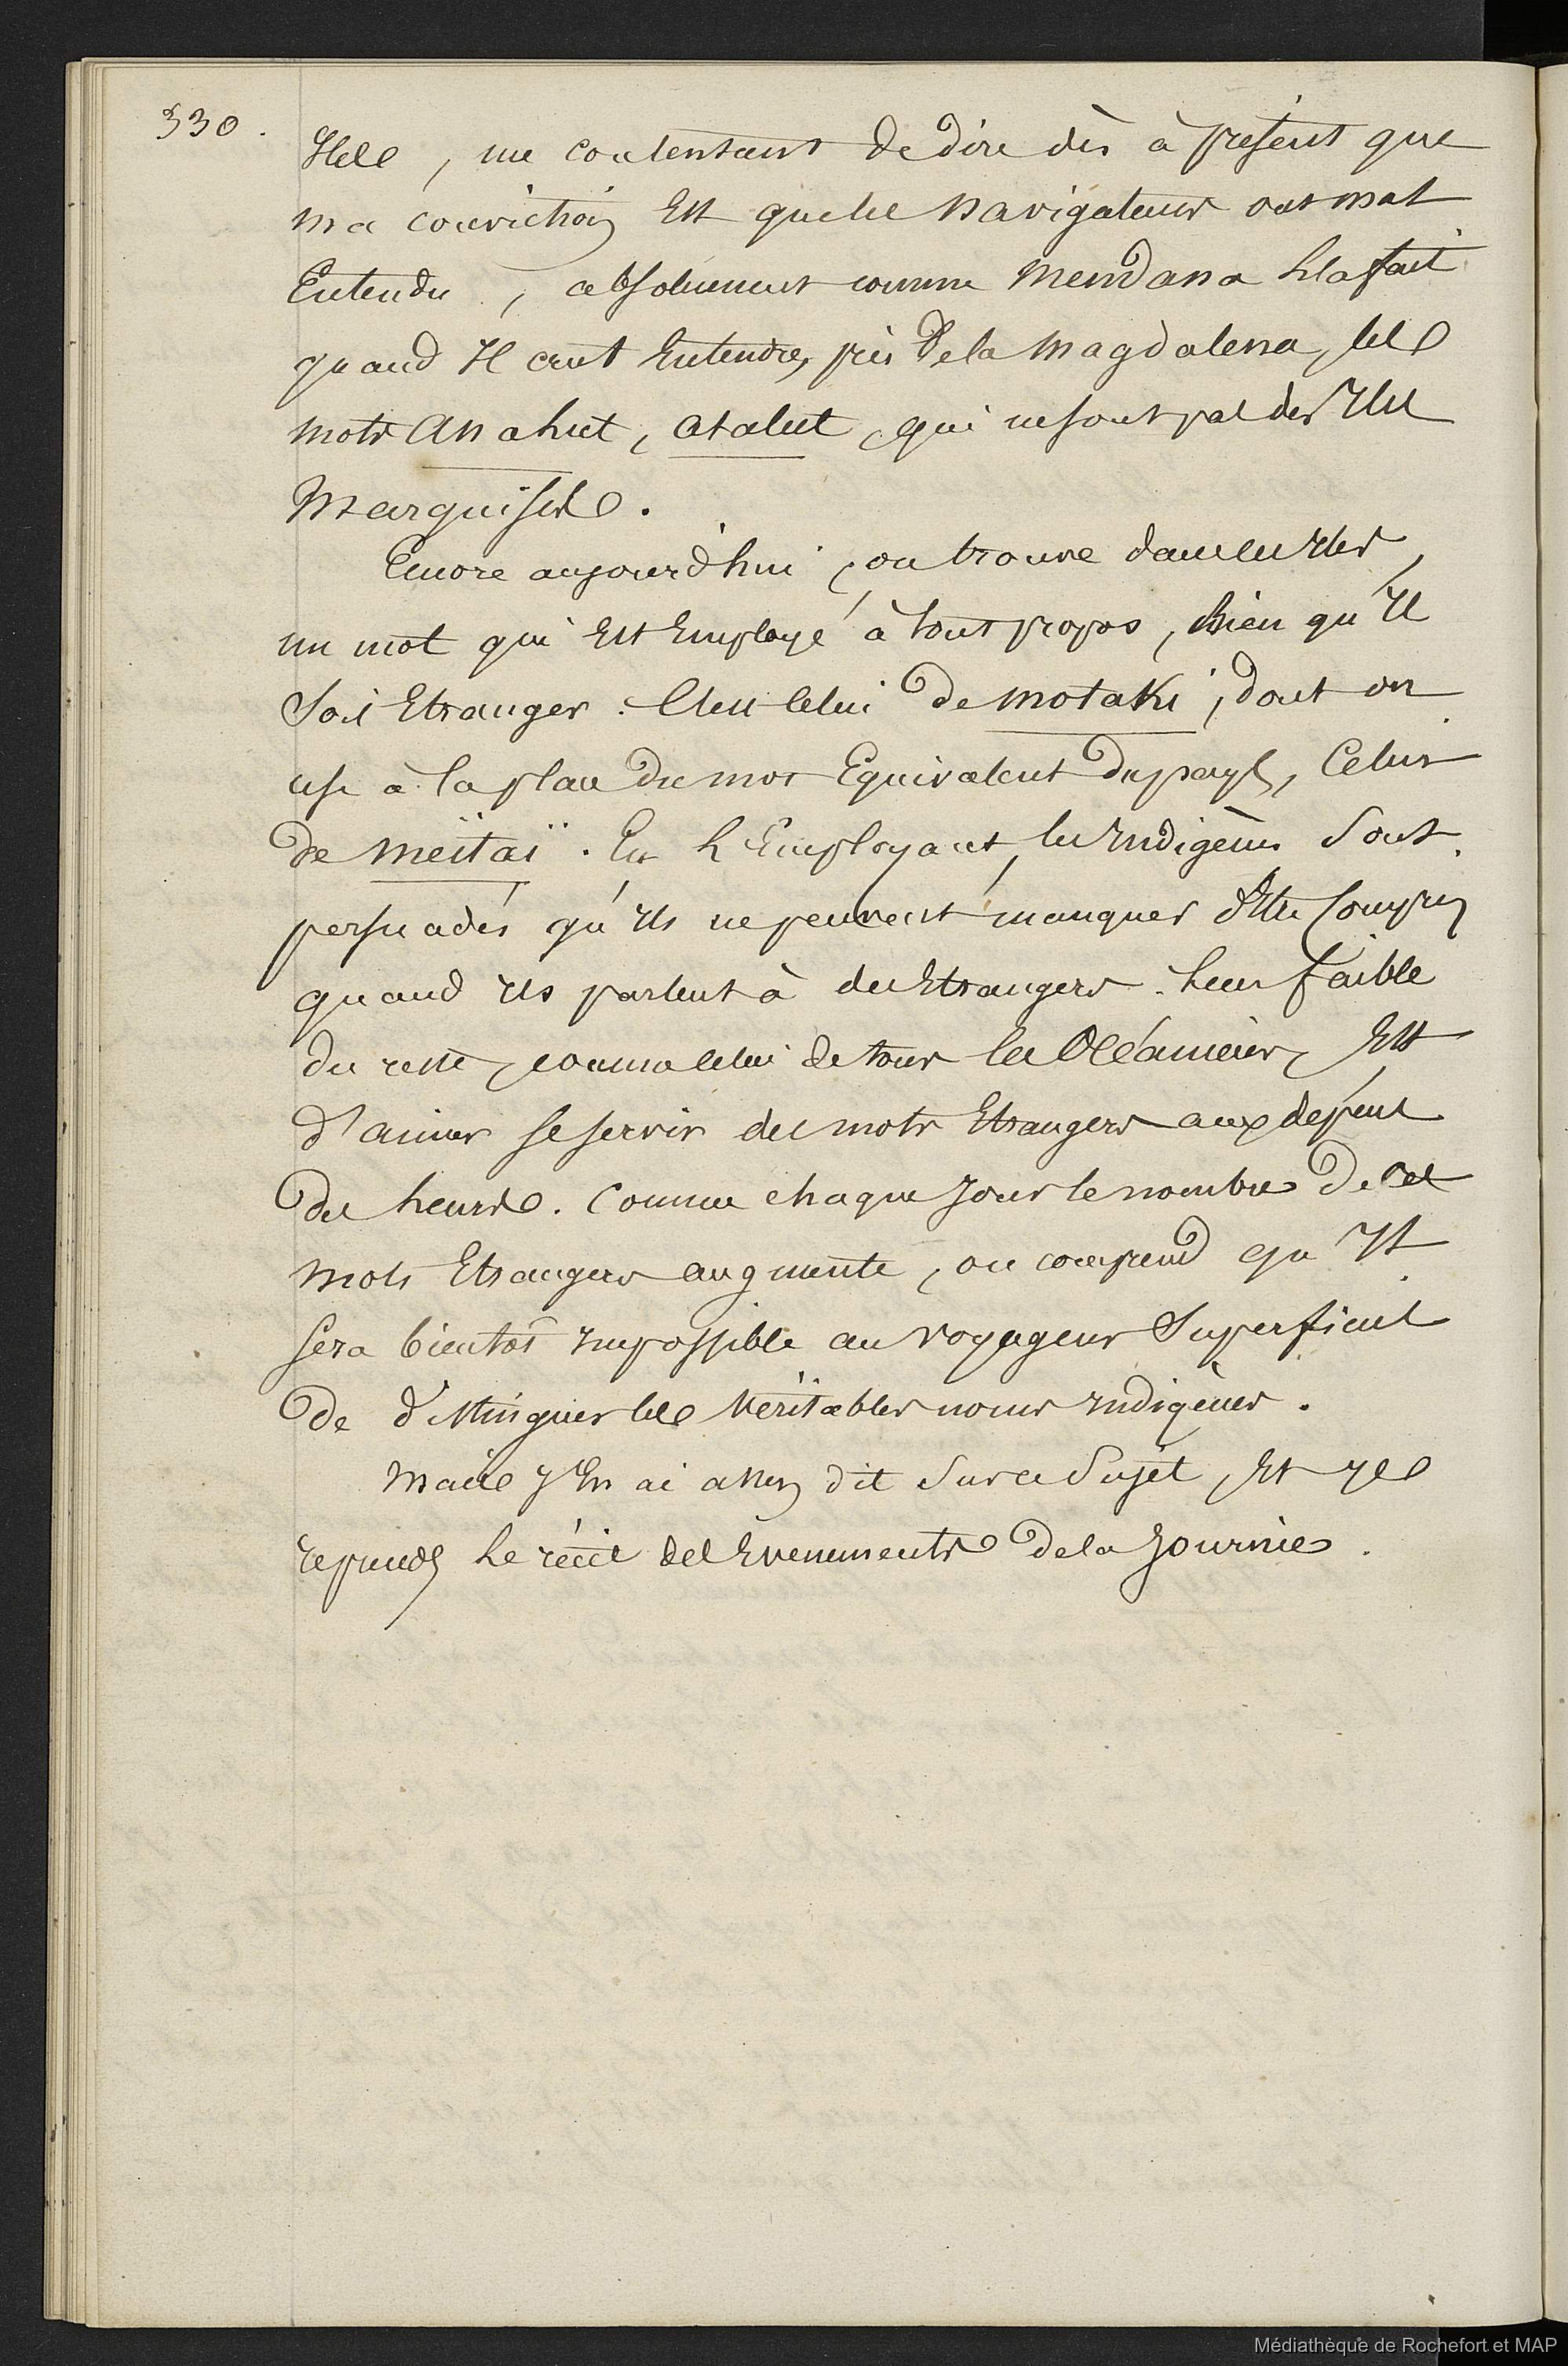 330.
Iles, me contentant de dire dès à présent que
ma conviction est que les navigateurs ont mal
Entendu, absolument comme Mendana l'a fait
quand Il crut Entendre, près de la Magdalena, les
mots Anahut, Atalut, qui ne sont pas des Iles
Marquises.
Encore aujourd'hui, on trouve dans les Iles,
un mot qui est Employé à tout propos, bien qu'Il
soit Etranger: C'est celui de motaki, dont on
use à la place du mot Equivalent du pays, Celui
de meïtaï. En l'Employant, les Indigènes sont
persuadés qu'Ils ne peuvent manquer d'être Compris
quand Ils parlent à des Etrangers. Leur faible
du reste, comme celui de tous les Océaniens, Est
d'aimer se servir des mots Etrangers aux dépens
des leurs. Comme chaque Jour le nombre de ces
mots Etrangers augmente, on comprend qu'Il
sera bientôt Impossible au voyageur Superficiel
de distinguer les véritables noms Indigènes.
Mais j'En ai assez dit sur ce Sujet, Et je
reprends le récit des Evenements de la Journée.
Médiathèque de Rochefort et MAP